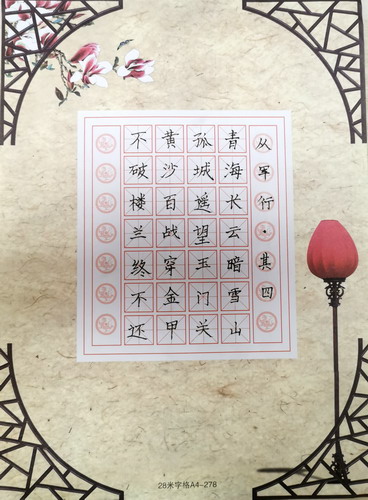 从军行·其四
青海长云暗雪山
孤城遥望玉门关
黄沙百战穿金甲
不破楼兰终不还
28米字格A4-278